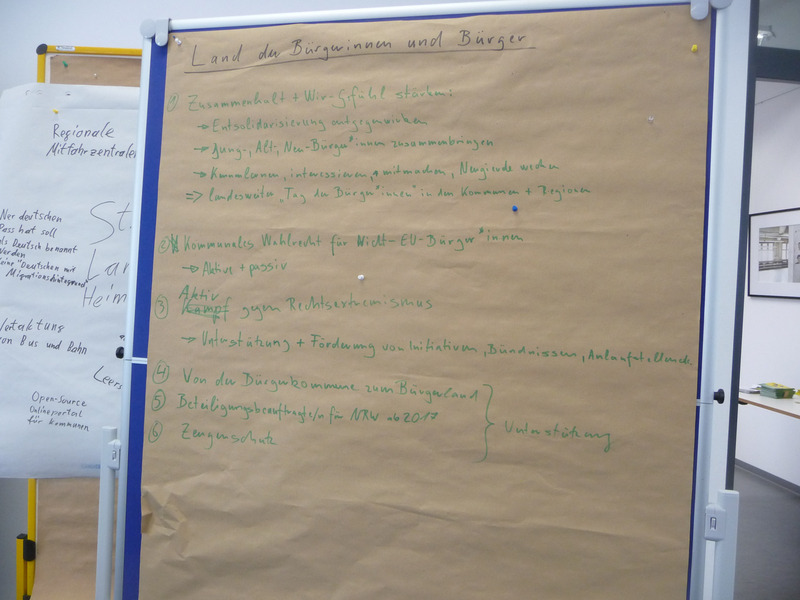 Land der Bürgerinnen und Bürger
① Zusammenhalt + Wir-Gefühl stärken:
→ Entsolidarisierung entgegenwirken
→ Jung-, Alt-, Neu-Bürger*innen zusammenbringen
→ Kennenlernen, interessieren, mitmachen, Neugierde wecken
⇒ landesweiter "Tag der Bürger*innen" in den Kommunen + Regionen
② Kommunales Wahlrecht für Nicht-EU-Bürger*innen
→ Aktiv + passiv
Aktiv
③ Kampf gegen Rechtsextremismus
→ Unterstützung + Förderung von Initiativen, Bündnissen,
④ Von der Bürgerkommune zum Bürgerland
⑤ Beteiligungsbeauftragte/n für NRW ab 2017
⑥ Zeugenschutz
Unterstützung
Regionale
Mitfahrzentrale
deutschen
Pass hat soll
als Deutsch benannt
werden
"Deutschen mit
Migrationshintergrund"
St
Lan
Heim
Vertaktung
von Bus und Bahn
Leers
Open-Source
Onlineportal
für Kommunen